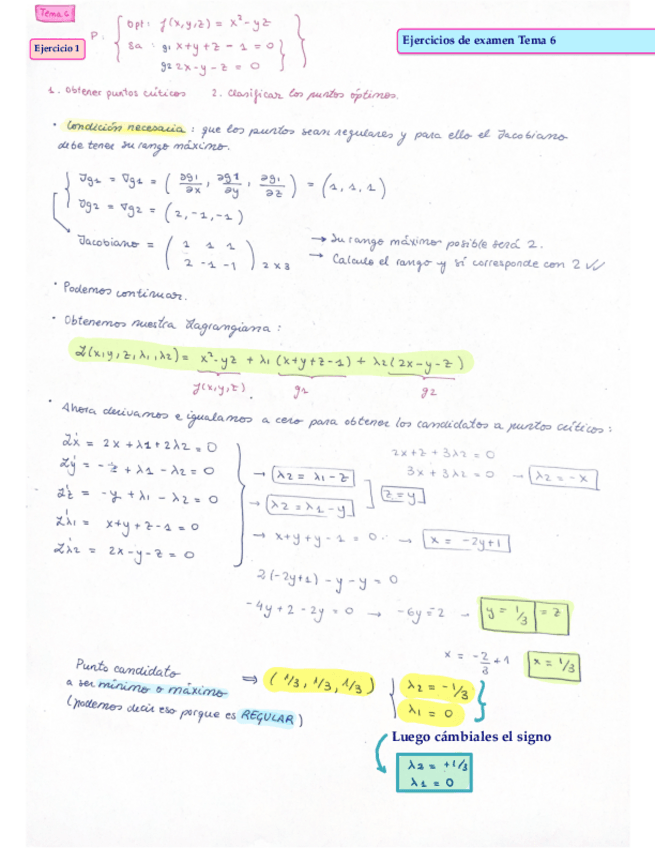 Tema 6
Ejercicio 1
Ejercicios de examen Tema 6
P: { Opt: f(x,y,z) = x² - yz
sa: g1 x+y+z-1 = 0
g2 2x-y-z = 0 }
1. Obtener puntos críticos 2. Clasificar los puntos óptimos.
· Condición necesaria: que los puntos sean regulares y para ello el Jacobiano
debe tener su rango máximo.
Jg1 = ∇g1 = (∂g1/∂x, ∂g1/∂y, ∂g1/∂z) = (1, 1, 1)
Jg2 = ∇g2 = (2, -1, -1)
Jacobiano = ( 1 1 1
2 -1 -1 ) 2x3
→ Su rango máximo posible será 2.
→ Calculo el rango y sí corresponde con 2 ✓✓
· Podemos continuar.
· Obtenemos nuestra Lagrangiana:
L(x,y,z,λ1,λ2) = x²-yz + λ1(x+y+z-1) + λ2(2x-y-z)
f(x,y,z). g1 g2
· Ahora derivamos e igualamos a cero para obtener los candidatos a puntos críticos:
L'x = 2x + λ1 + 2λ2 = 0
L'y = -z + λ1 - λ2 = 0
L'z = -y + λ1 - λ2 = 0
L'λ1 = x+y+z-1 = 0
L'λ2 = 2x-y-z = 0
→ λ2 = λ1 - z
→ λ2 = λ1 - y
z = y
2x + z + 3λ2 = 0
3x + 3λ2 = 0 → λ2 = -x
→ x+y+y-1 = 0 → x = -2y+1
2(-2y+1) - y - y = 0
-4y + 2 - 2y = 0 → -6y = 2 → y = 1/3 = z
x = -2/3 + 1 x = 1/3
Punto candidato
a ser mínimo o máximo
(podemos decir eso porque es REGULAR)
⇒ (1/3, 1/3, 1/3)
λ2 = -1/3
λ1 = 0
Luego cámbiales el signo
λ2 = +1/3
λ1 = 0